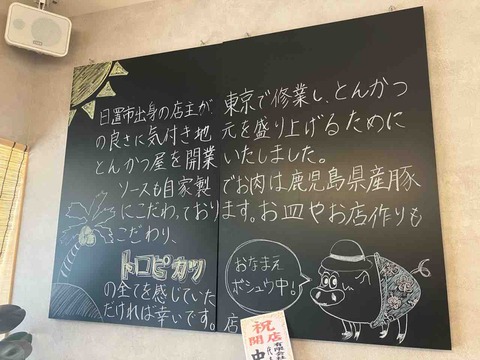 日置市出身の店主が、東京で修業し、とんかつ
の良さに気付き地元を盛り上げるために
とんかつ屋を開業いたしました。
ソースも自家製でお肉は鹿児島県産豚
にこだわっております。お皿やお店作りも
こだわり、
トロピカツ
の全てを感じていた
だければ幸いです。店
おなまえ
ボシュウ中。
祝
開店